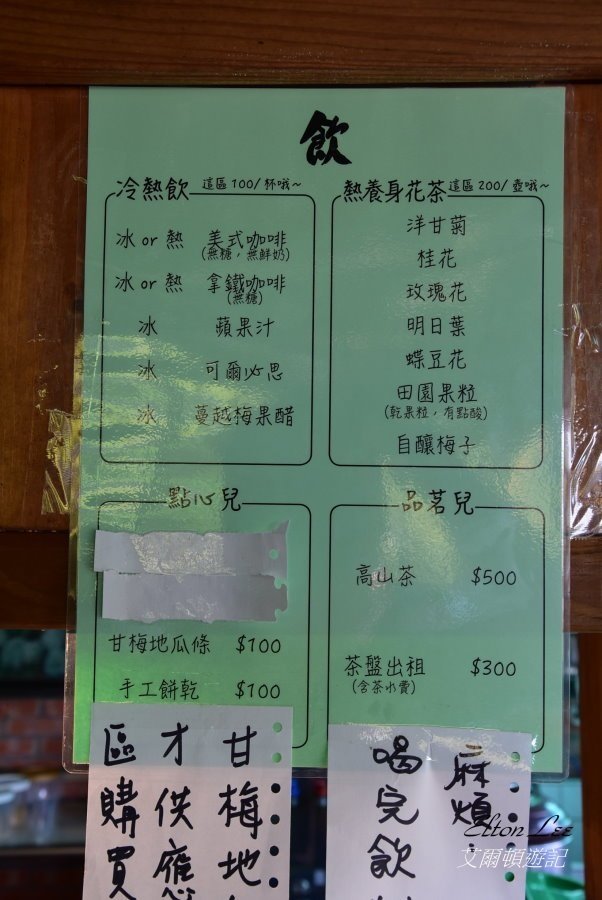 飲
冷熱飲 這區100/杯哦~
冰 or 熱 美式咖啡
(無糖，無鮮奶)
冰 or 熱 拿鐵咖啡
(無糖)
冰 蘋果汁
冰 可爾必思
冰 蔓越梅果醋
熱養身花茶 這區200/壺哦~
洋甘菊
桂花
玫瑰花
明日葉
蝶豆花
田園果粒
(乾果粒，有點酸)
自釀梅子
點心兒
甘梅地瓜條 $100
手工餅乾 $100
品茗兒
高山茶 $500
茶盤出租 $300
(含茶水費)
甘梅地
才供應
區購買
麻煩
喝完飲
Elton Lee
艾爾頓遊記